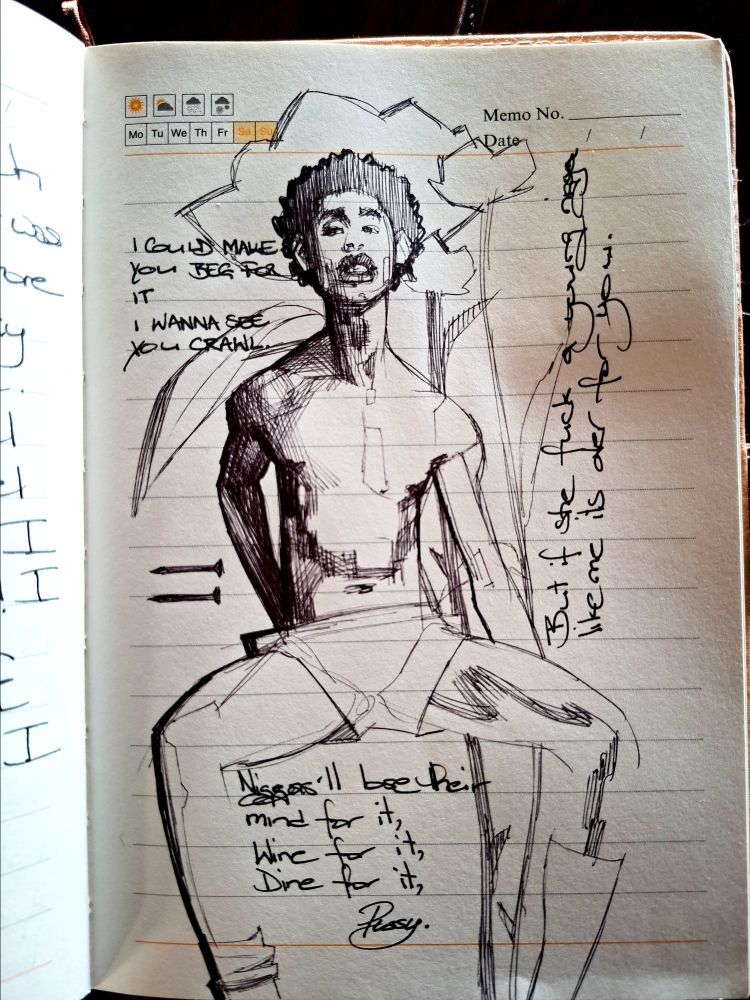 Memo No.
Date / /
Mo Tu We Th Fr Sa Su
I COULD MAKE
YOU BEG FOR
IT
I WANNA SEE
YOU CRAWL.
But if she fuck a young
like me its over for you.
Niggas'll lose their
mind for it,
Wine for it,
Dine for it,
Pussy.